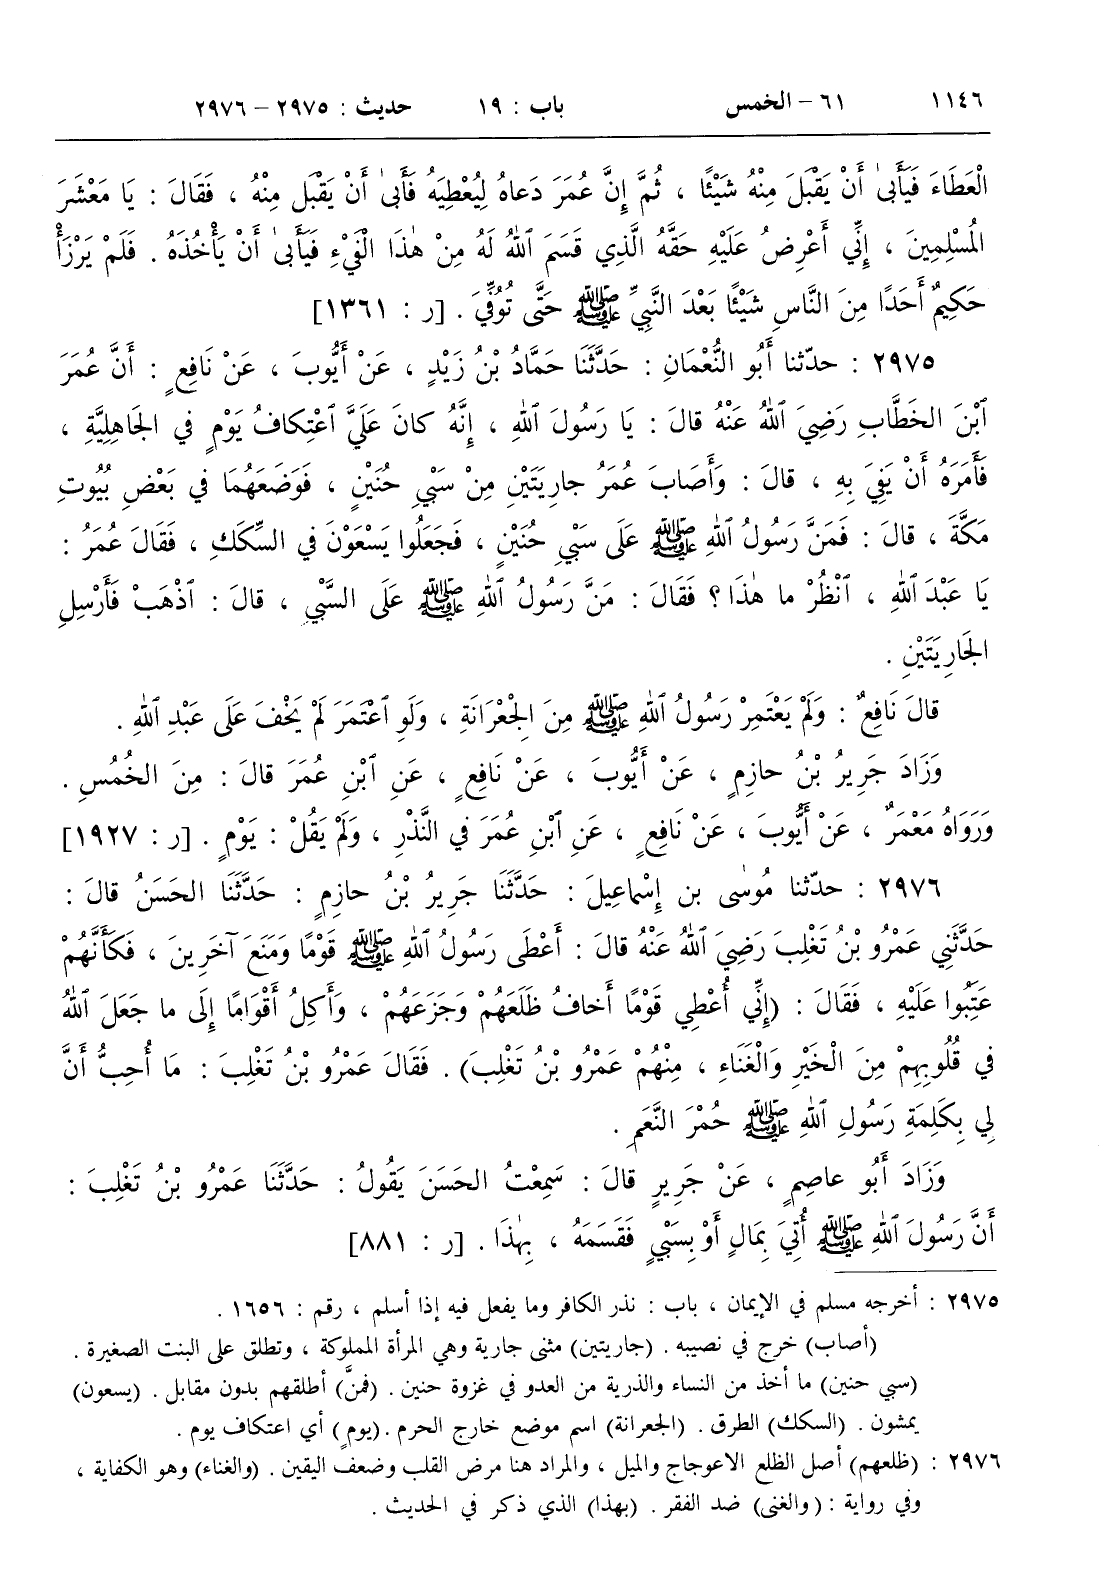 ١١٤٦ ٦١ - الخمس باب : ١٩ حديث : ٢٩٧٥ - ٢٩٧٦
الْعَطَاءَ فَيَأْبىٰ أَنْ يَقْبَلَ مِنْهُ شَيْئًا ، ثُمَّ إِنَّ عُمَرَ دَعَاهُ لِيُعْطِيَهُ فَأَبىٰ أَنْ يَقْبَلَ مِنْهُ ، فَقَالَ : يَا مَعْشَرَ
الْمُسْلِمِينَ ، إِنِّي أَعْرِضُ عَلَيْهِ حَقَّهُ الَّذِي قَسَمَ ٱللهُ لَهُ مِنْ هٰذَا الْفَيْءِ فَيَأْبىٰ أَنْ يَأْخُذَهُ . فَلَمْ يَرْزَأْ
حَكِيمٌ أَحَدًا مِنَ النَّاسِ شَيْئًا بَعْدَ النَّبِيِّ ﷺ حَتَّى تُوُفِّيَ . [ر : ١٣٦١]
٢٩٧٥ : حدّثنا أَبُو النُّعْمَانِ : حَدَّثَنَا حَمَّادُ بْنُ زَيْدٍ ، عَنْ أَيُّوبَ ، عَنْ نَافِعٍ : أَنَّ عُمَرَ
ٱبْنَ الخَطَّابِ رَضِيَ ٱللهُ عَنْهُ قالَ : يَا رَسُولَ ٱللهِ ، إِنَّهُ كانَ عَلَيَّ ٱعْتِكافُ يَوْمٍ في الجَاهِلِيَّةِ ،
فَأَمَرَهُ أَنْ يَفِيَ بِهِ ، قالَ : وَأَصَابَ عُمَرُ جارِيَتَيْنِ مِنْ سَبْيِ حُنَيْنٍ ، فَوَضَعَهُمَا في بَعْضِ بُيُوتِ
مَكَّةَ ، قالَ : فَمَنَّ رَسُولُ ٱللهِ ﷺ عَلَى سَبْيِ حُنَيْنٍ ، فَجَعَلُوا يَسْعَوْنَ في السِّكَكِ ، فَقَالَ عُمَرُ :
يَا عَبْدَ ٱللهِ ، ٱنْظُرْ ما هٰذَا ؟ فَقَالَ : مَنَّ رَسُولُ ٱللهِ ﷺ عَلَى السَّبْيِ ، قالَ : ٱذْهَبْ فَأَرْسِلِ
الجَارِيَتَيْنِ .
قالَ نَافِعٌ : وَلَمْ يَعْتَمِرْ رَسُولُ ٱللهِ ﷺ مِنَ الْجِعْرَانَةِ ، وَلَوِ ٱعْتَمَرَ لَمْ يَخْفَ عَلَى عَبْدِ ٱللهِ .
وَزَادَ جَرِيرُ بْنُ حازِمٍ ، عَنْ أَيُّوبَ ، عَنْ نَافِعٍ ، عَنِ ٱبْنِ عُمَرَ قالَ : مِنَ الخُمُسِ .
وَرَوَاهُ مَعْمَرٌ ، عَنْ أَيُّوبَ ، عَنْ نَافِعٍ ، عَنِ ٱبْنِ عُمَرَ في النَّذْرِ ، وَلَمْ يَقُلْ : يَوْمٍ . [ر : ١٩٢٧]
٢٩٧٦ : حدّثنا مُوسٰى بن إِسْماعِيلَ : حَدَّثَنَا جَرِيرُ بْنُ حازِمٍ : حَدَّثَنَا الحَسَنُ قالَ :
حَدَّثَنِي عَمْرُو بْنُ تَغْلِبَ رَضِيَ ٱللهُ عَنْهُ قالَ : أَعْطَى رَسُولُ ٱللهِ ﷺ قَوْمًا وَمَنَعَ آخَرِينَ ، فَكَأَنَّهُمْ
عَتِبُوا عَلَيْهِ ، فَقَالَ : (إِنِّي أُعْطِي قَوْمًا أَخافُ ظَلَعَهُمْ وَجَزَعَهُمْ ، وَأَكِلُ أَقْوَامًا إِلَى ما جَعَلَ ٱللهُ
في قُلُوبِهِمْ مِنَ الْخَيْرِ وَالْغَنَاءِ ، مِنْهُمْ عَمْرُو بْنُ تَغْلِبَ) . فَقَالَ عَمْرُو بْنُ تَغْلِبَ : مَا أُحِبُّ أَنَّ
لِي بِكَلِمَةِ رَسُولِ ٱللهِ ﷺ حُمْرَ النَّعَمِ .
وَزَادَ أَبُو عاصِمٍ ، عَنْ جَرِيرٍ قالَ : سَمِعْتُ الحَسَنَ يَقُولُ : حَدَّثَنَا عَمْرُو بْنُ تَغْلِبَ :
أَنَّ رَسُولَ ٱللهِ ﷺ أُتِيَ بِمَالٍ أَوْ بِسَبْيٍ فَقَسَمَهُ ، بِهٰذَا . [ر : ٨٨١]
٢٩٧٥ : أخرجه مسلم في الإيمان ، باب : نذر الكافر وما يفعل فيه إذا أسلم ، رقم : ١٦٥٦ .
(أصاب) خرج في نصيبه . (جاريتين) مثنى جارية وهي المرأة المملوكة ، وتطلق على البنت الصغيرة .
(سبي حنين) ما أخذ من النساء والذرية من العدو في غزوة حنين . (فمنَّ) أطلقهم بدون مقابل . (يسعون)
يمشون . (السكك) الطرق . (الجعرانة) اسم موضع خارج الحرم .(يومٍ) أي اعتكاف يوم .
٢٩٧٦ : (ظلعهم) أصل الظلع الاعوجاج والميل ، والمراد هنا مرض القلب وضعف اليقين . (والغناء) وهو الكفاية ،
وفي رواية : (والغنى) ضد الفقر . (بهذا) الذي ذكر في الحديث .